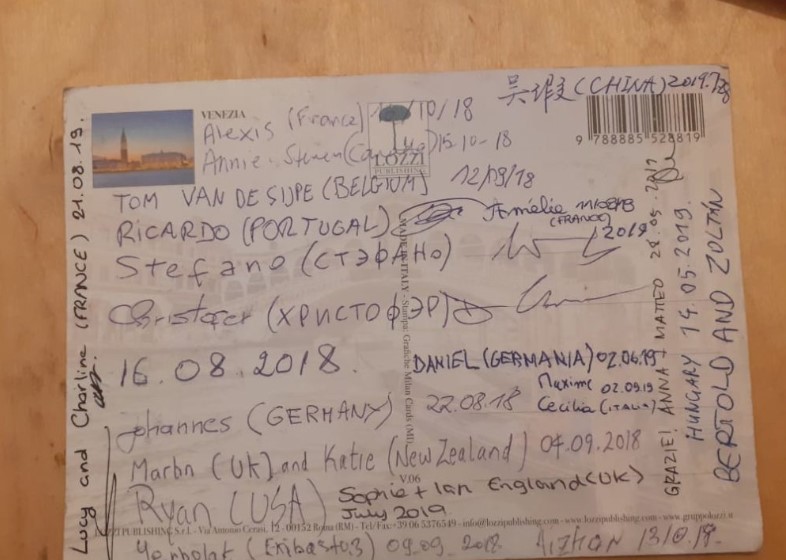 吴瑕 (CHINA) 2019.7.28
VENEZIA
Alexis (France) /10/18
LOZZI
PUBLISHING
9 788885 528819
Annie. Steven 15-10-18
TOM VAN DE SIJPE (BELGIUM) 12/09/18
RICARDO (PORTUGAL)
Amélie
(FRANCE)
2019
Stefano (СТЭФАНО)
Christofer (ХРИСТОФЭР)
16.08.2018.
DANIEL (GERMANIA) 02.06.19
Maxime 02.09.19
22.08.18 Cecilia (ITALIA)
Johannes (GERMANY)
Martin (UK) and Katie (New Zealand) 04.09.2018
V.06
Ryan (USA)
Sophie + Ian England (UK)
July 2019
LOZZI PUBLISHING S.r.l. - Via Antonio Cerasi, 12 - 00152 Roma (RM) - Tel/Fax +39 06 5376549 - info@lozzipublishing.com - www.lozzipublishing.com - www.gruppolozzi.it
09.09.2018
MADE IN ITALY - Stampa: Grafiche Milan Cinde (MI)
Lucy and Charline (FRANCE) 21.08.19.
GRAZIE! ANNA + MATTEO
HUNGARY 14.05.2019.
BERTOLD AND ZOLTÁN